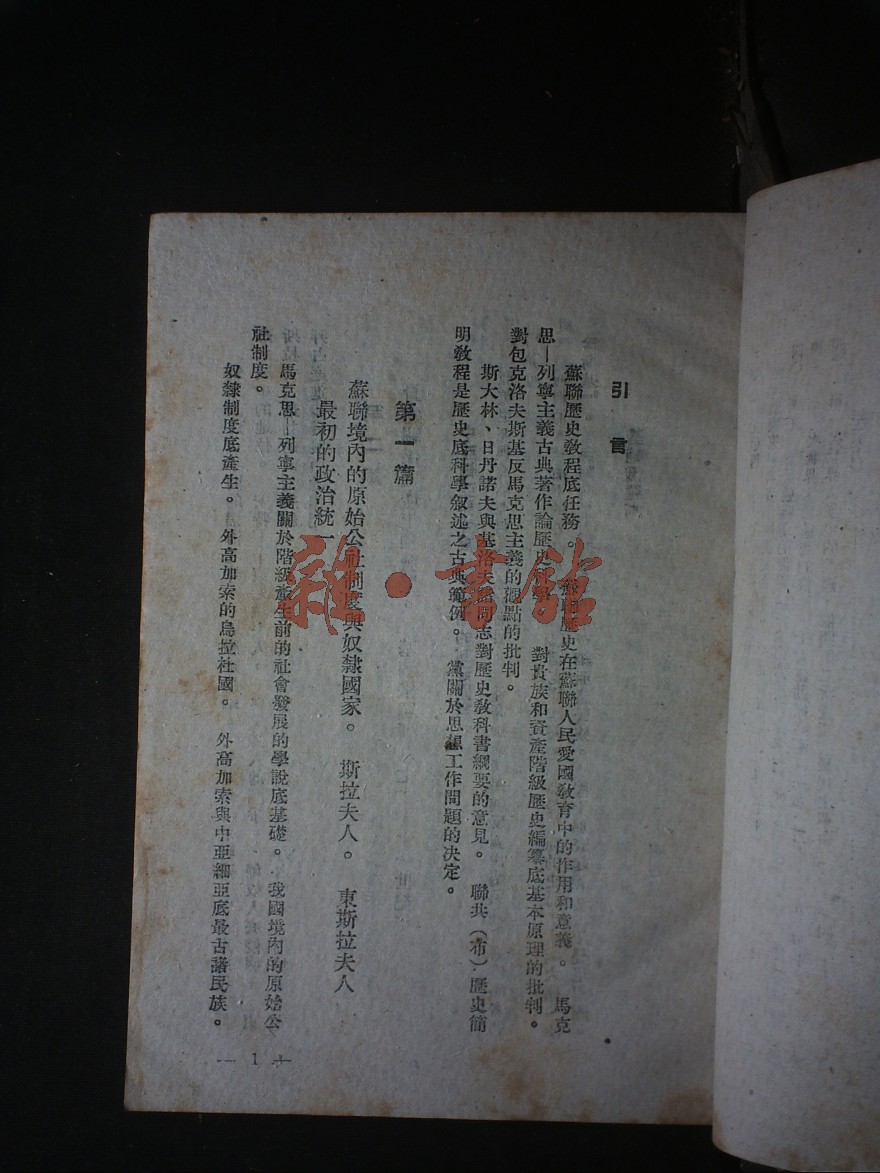 引言
蘇聯歷史教程底任務。 蘇聯歷史在蘇聯人民愛國教育中的作用和意義。 馬克
思—列寧主義古典著作論歷史科學。 對貴族和資產階級歷史編纂底基本原理的批判。
對包克洛夫斯基反馬克思主義的觀點的批判。
斯大林、日丹諾夫與基洛夫諸同志對歷史教科書綱要的意見。 聯共（布）歷史簡
明教程是歷史底科學叙述之古典範例。 黨關於思想工作問題的决定。
第一篇
蘇聯境內的原始公社制度與奴隸國家。 斯拉夫人。 東斯拉夫人
最初的政治統一
馬克思—列寧主義關於階級產生前的社會發展的學說底基礎。 我國境內的原始公
社制度。
奴隸制度底產生。 外高加索的烏拉杜國。 外高加索與中亞細亞底最古諸民族。
— 1 —
雜·書館